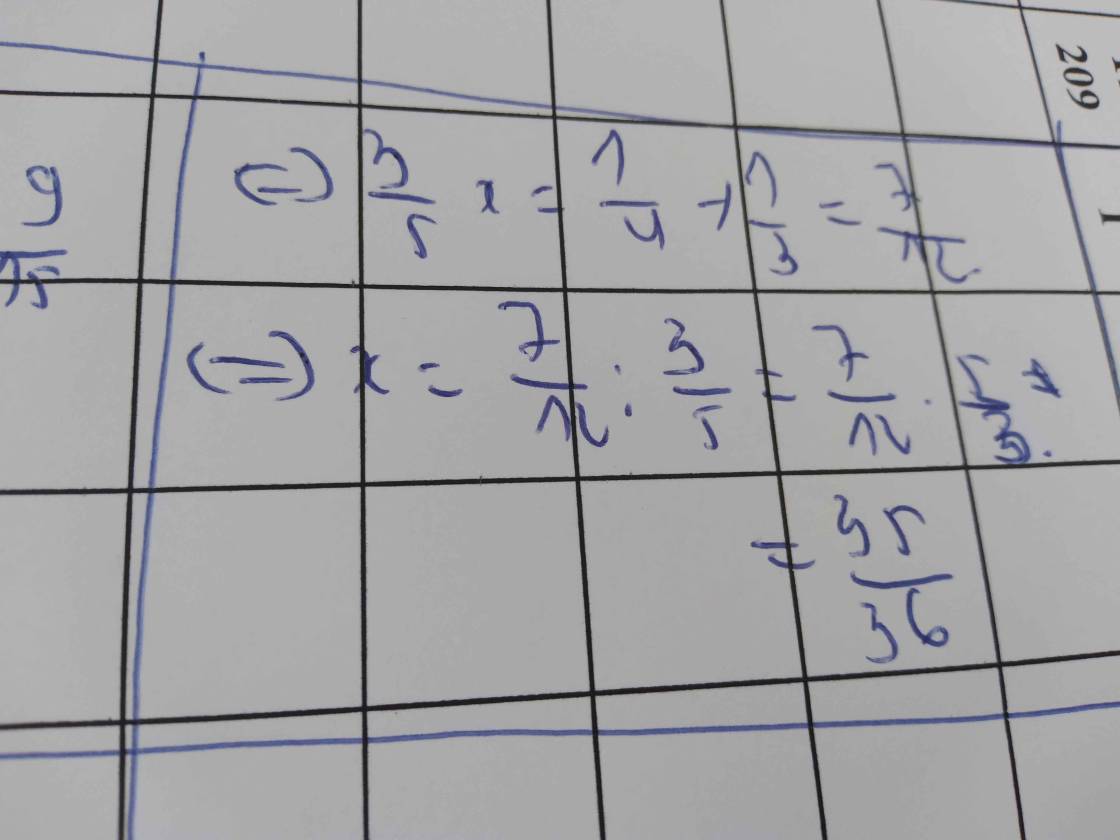 209
1
9/15
(=) 3/5 x = 1/4 + 1/3 = 7/12
(=) x = 7/12 : 3/5 = 7/12 . 5/3
= 35/36